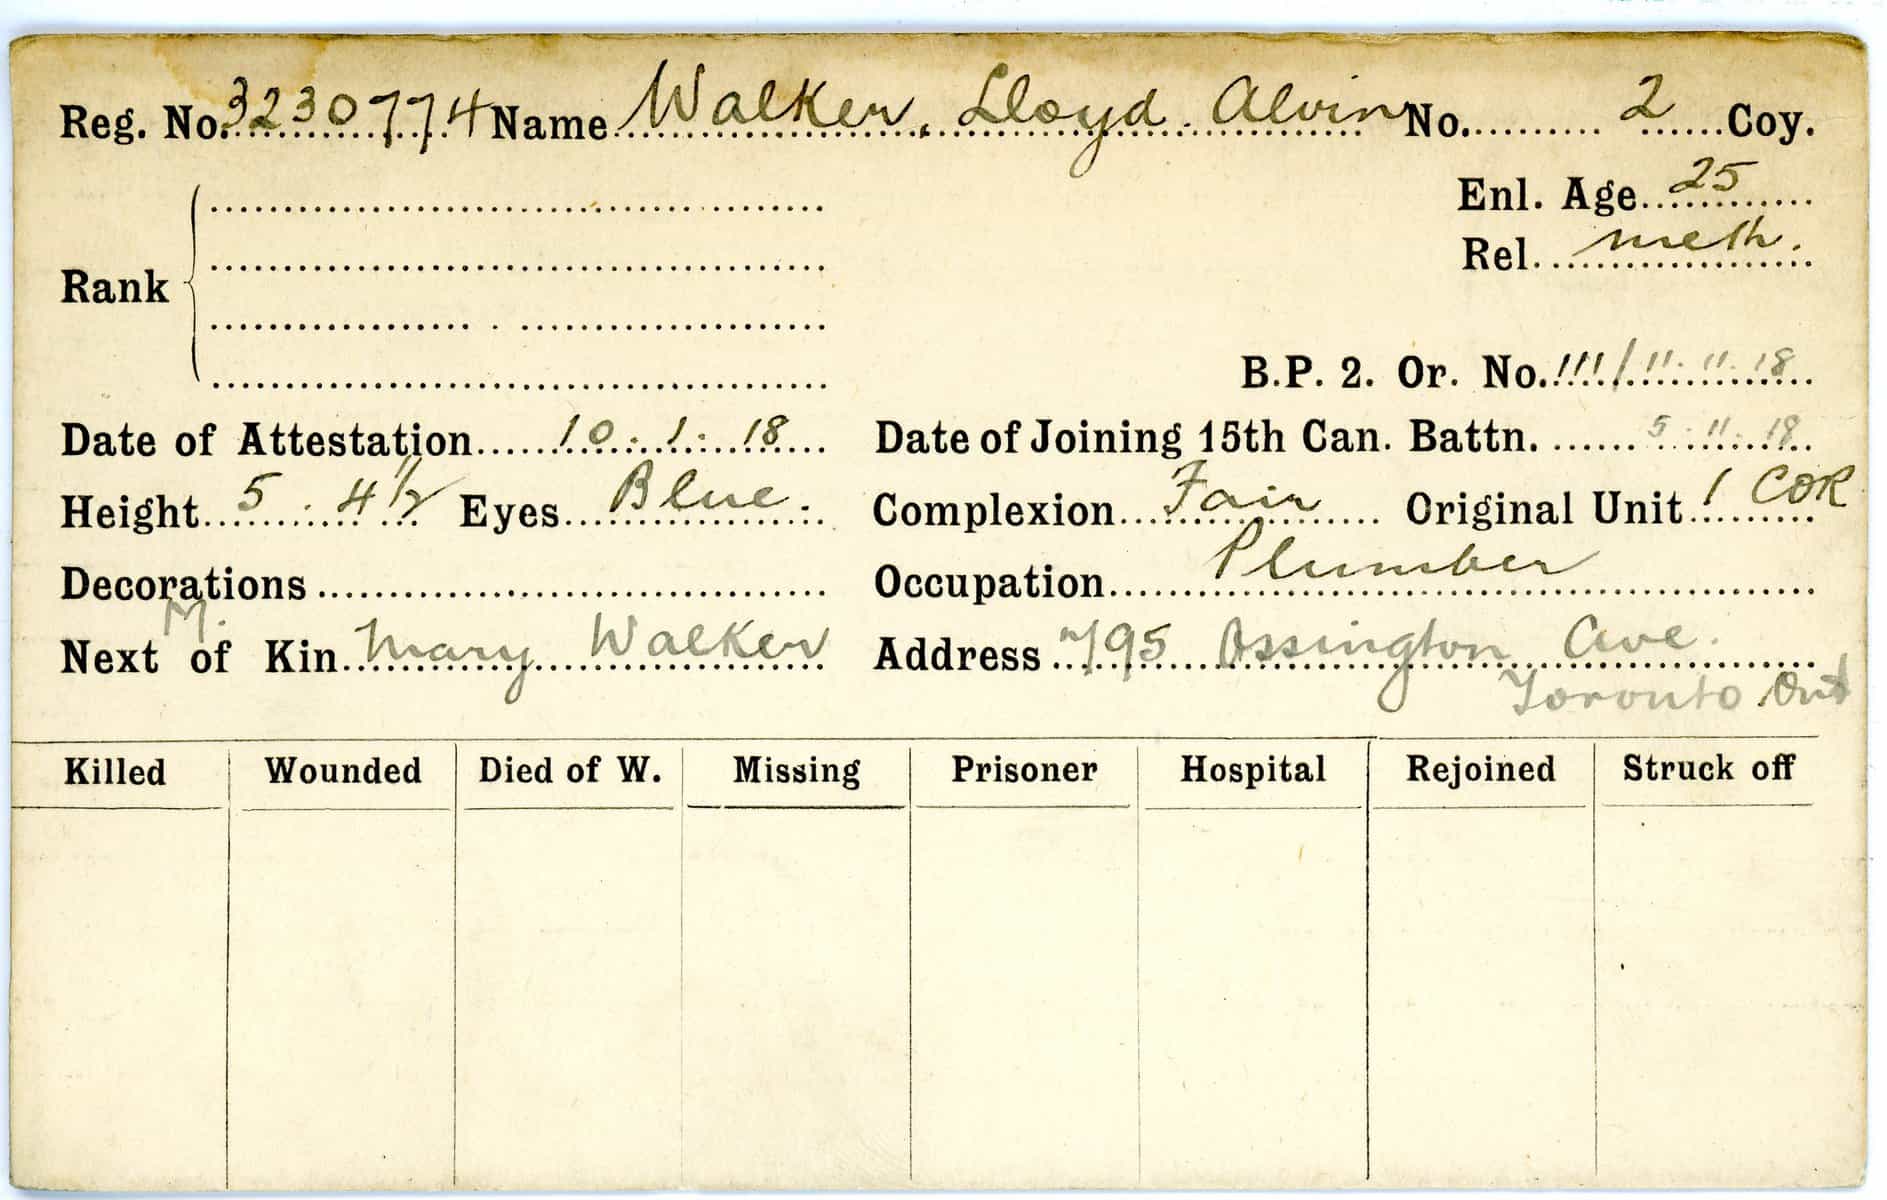 Reg. No. 3230774 Name Walker, Lloyd Alvin No. 2 Coy.
Enl. Age 25
Rel. meth.
Rank
B.P. 2. Or. No. 111/11.11.18
Date of Attestation 10.1.18 Date of Joining 15th Can. Battn. 5.11.18
Height 5.4½ Eyes Blue. Complexion Fair Original Unit 1 COR
Decorations Occupation Plumber
M.
Next of Kin Mary Walker Address 795 Ossington Ave.
Toronto Ont
Killed Wounded Died of W. Missing Prisoner Hospital Rejoined Struck off